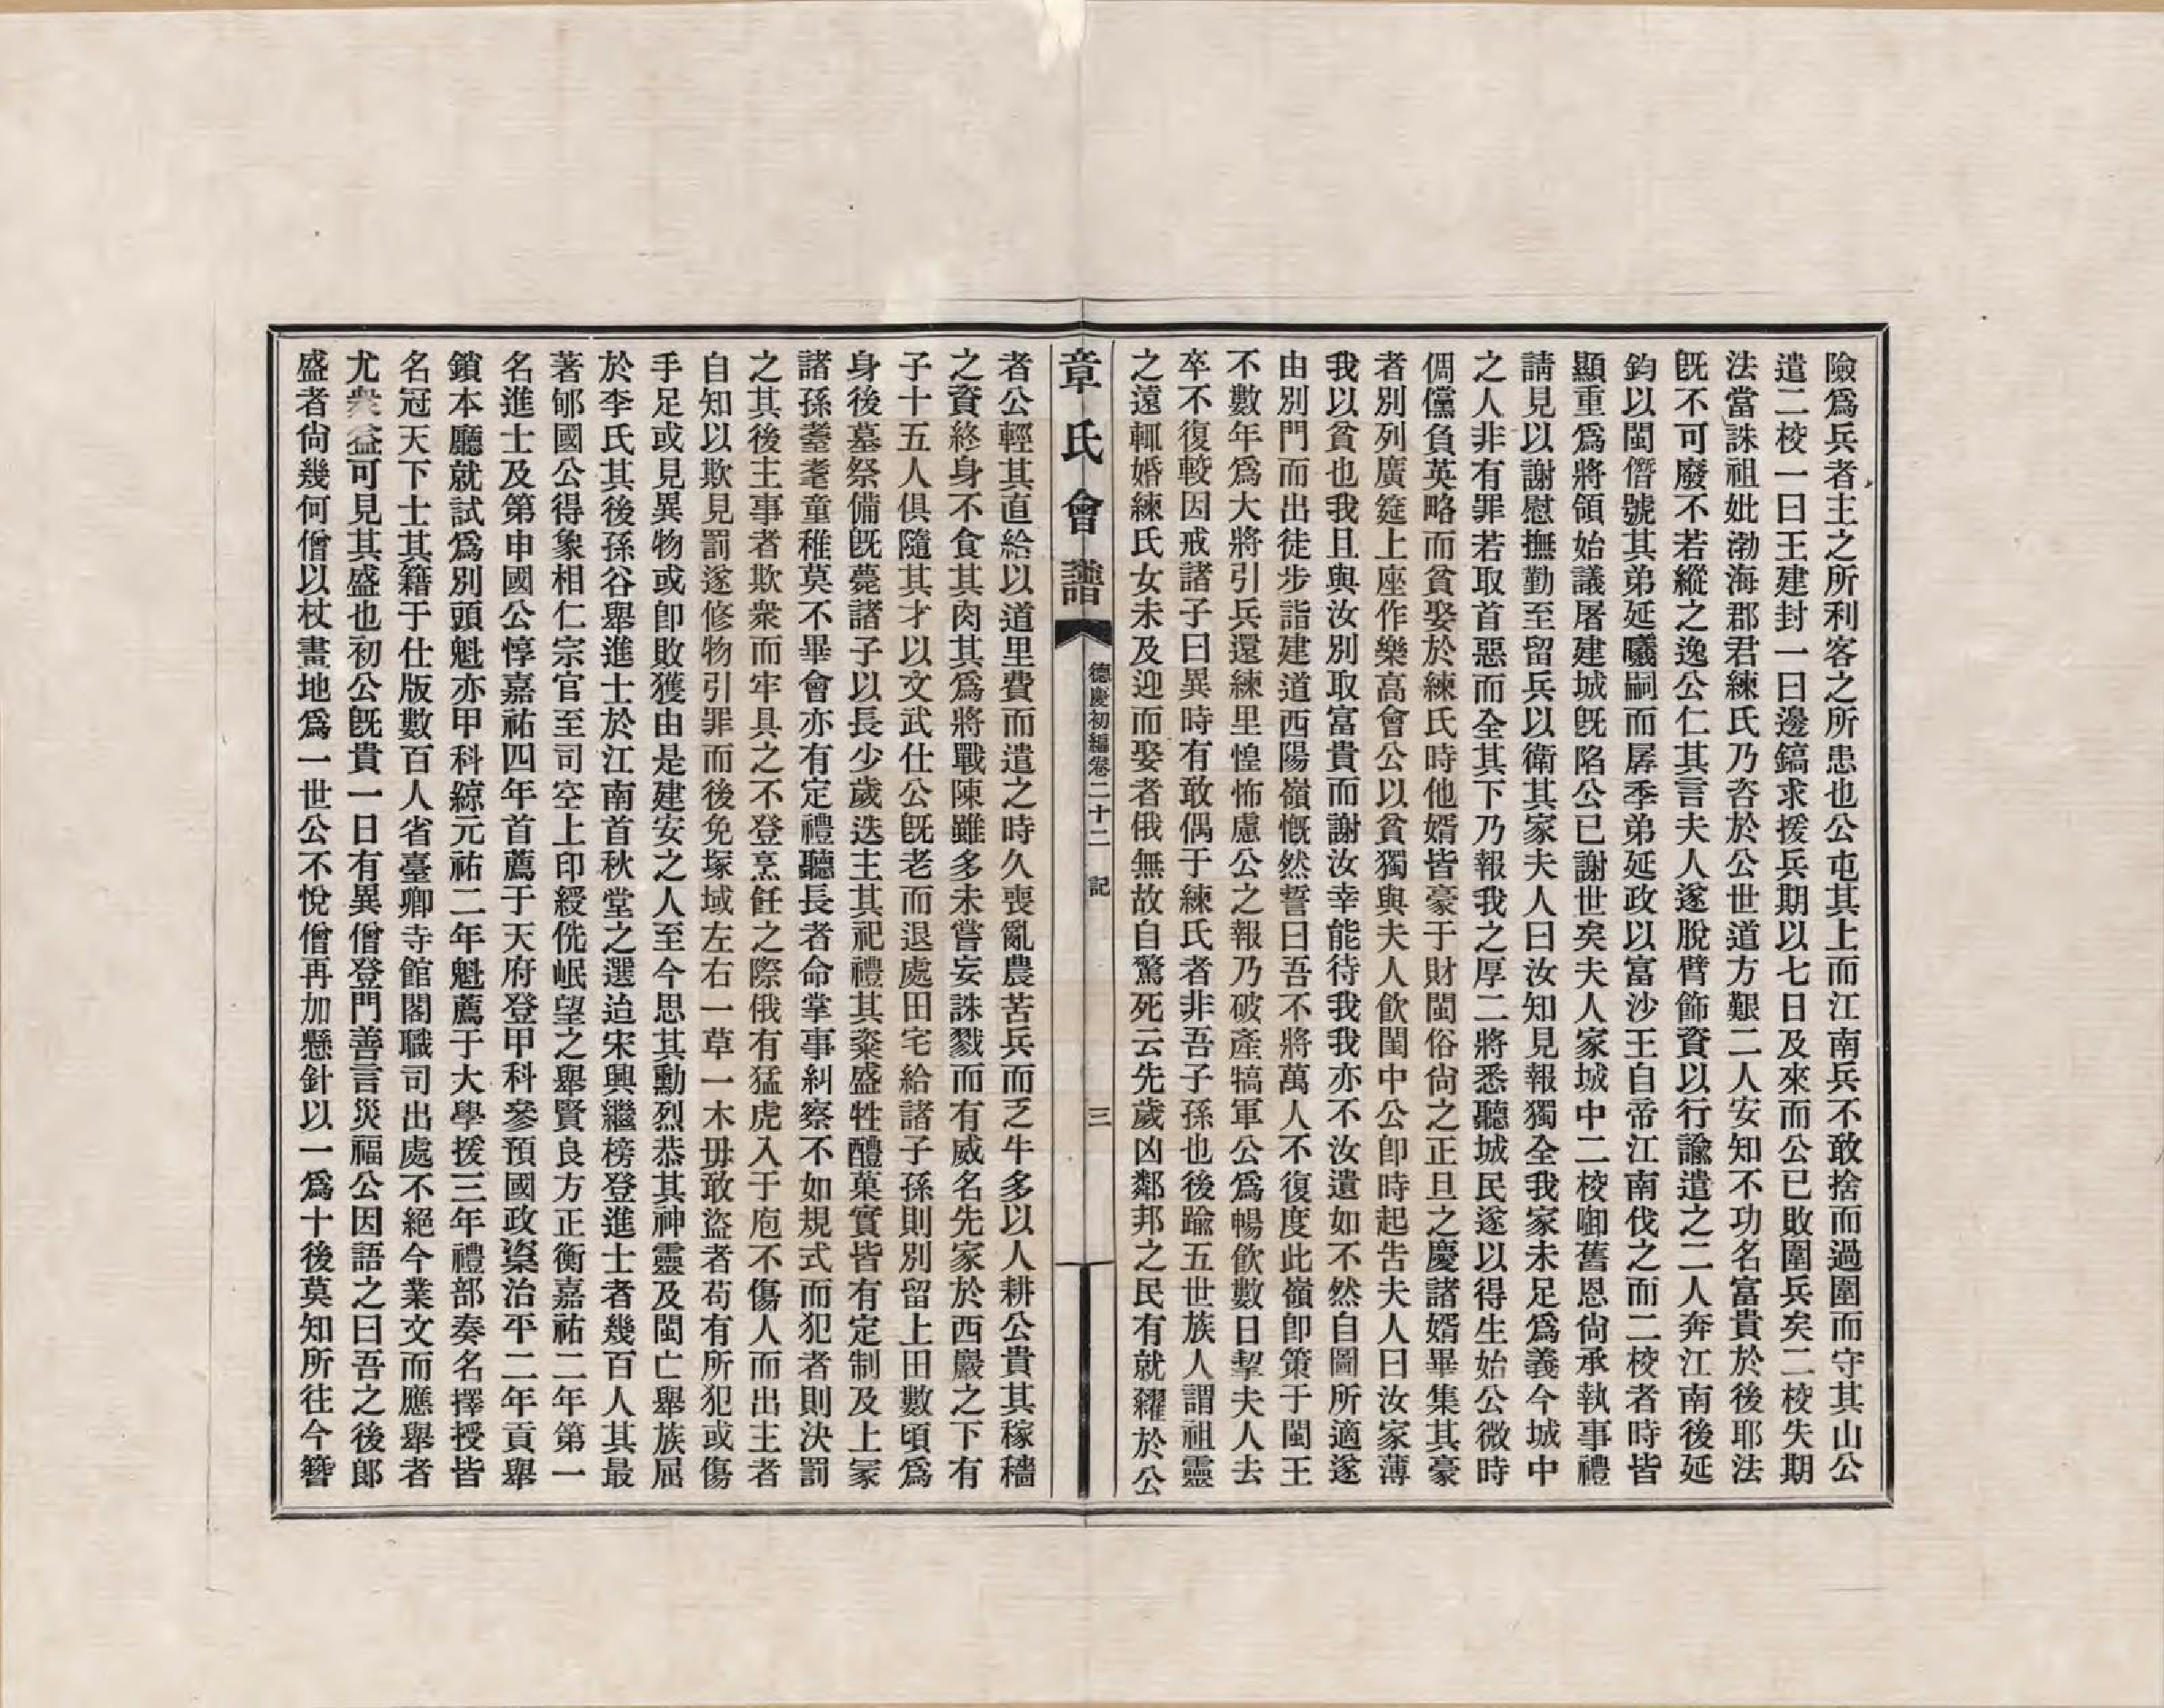 險爲兵者主之所利客之所患也公屯其上而江南兵不敢捨而過圍而守其山公
遣二校一曰王建封一曰邊鎬求援兵期以七日及來而公已敗圍兵矣二校失期
法當誅祖妣渤海郡君練氏乃咨於公世道方艱二人安知不功名富貴於後耶法
旣不可廢不若縱之逸公仁其言夫人遂脫臂飾資以行諭遣之二人奔江南後延
鈞以閩僭號其弟延曦嗣而孱季弟延政以富沙王自帝江南伐之而二校者時皆
顯重爲將領始議屠建城旣陷公已謝世矣夫人家城中二校啣舊恩尙承執事禮
請見以謝慰撫勤至留兵以衛其家夫人曰汝知見報獨全我家未足爲義今城中
之人非有罪若取首惡而全其下乃報我之厚二將悉聽城民遂以得生始公微時
倜儻負英略而貧娶於練氏時他婿皆豪于財閩俗尙之正旦之慶諸婿畢集其豪
者別列廣筵上座作樂高會公以貧獨與夫人飮閨中公卽時起吿夫人曰汝家薄
我以貧也我且與汝別取富貴而謝汝幸能待我我亦不汝遺如不然自圖所適遂
由別門而出徒步詣建道西陽嶺慨然誓曰吾不將萬人不復度此嶺卽策于閩王
不數年爲大將引兵還練里惶怖慮公之報乃破產犒軍公爲暢飮數日挈夫人去
卒不復較因戒諸子曰異時有敢偶于練氏者非吾子孫也後踰五世族人謂祖靈
之遠輒婚練氏女未及迎而娶者俄無故自驚死云先歲凶鄰邦之民有就糴於公
章氏會譜
德慶初編卷二十二 記
三
者公輕其直給以道里費而遣之時久喪亂農苦兵而乏牛多以人耕公貴其稼穡
之資終身不食其肉其爲將戰陳雖多未嘗妄誅戮而有威名先家於西巖之下有
子十五人俱隨其才以文武仕公旣老而退處田宅給諸子孫則別留上田數頃爲
身後墓祭備旣薨諸子以長少歲迭主其祀禮其粢盛牲醴菓實皆有定制及上冢
諸孫耋耄童稚莫不畢會亦有定禮聽長者命掌事糾察不如規式而犯者則決罰
之其後主事者欺衆而牢具之不登烹飪之際俄有猛虎入于庖不傷人而出主者
自知以欺見罰遂修物引罪而後免塚域左右一草一木毋敢盜者苟有所犯或傷
手足或見異物或卽敗獲由是建安之人至今思其勳烈恭其神靈及閩亡舉族屈
於李氏其後孫谷舉進士於江南首秋堂之選迨宋興繼榜登進士者幾百人其最
著郇國公得象相仁宗官至司空上印綬侁岷望之舉賢良方正衡嘉祐二年第一
名進士及第申國公惇嘉祐四年首薦于天府登甲科參預國政楶治平二年貢舉
鎖本廳就試爲別頭魁亦甲科綜元祐二年魁薦于大學援三年禮部奏名擇授皆
名冠天下士其籍于仕版數百人省臺卿寺館閣職司出處不絕今業文而應舉者
尤衆益可見其盛也初公旣貴一日有異僧登門善言災福公因語之曰吾之後郞
盛者尙幾何僧以杖畫地爲一世公不悅僧再加懸針以一爲十後莫知所往今簪